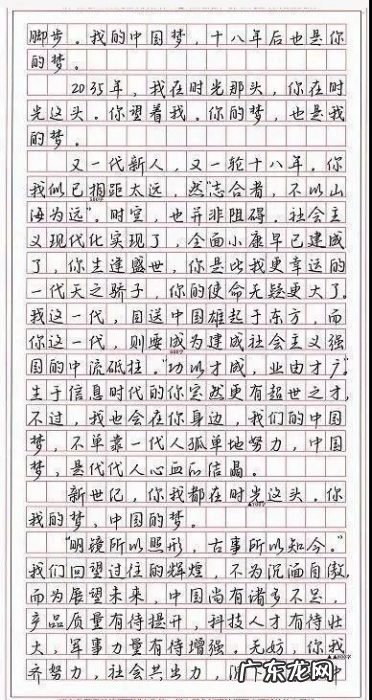 脚步。我的中国梦，十八年后也是你
的梦。
2035年，我在时光那头，你在时
光这头。你望着我。你的梦，也是我
的梦。
又一代新人，又一轮十八年。你
我似已相距太远，然“志合者，不以山
海为远”。时空，也并非阻碍。社会主
义现代化实现了，全面小康早已建成
了，你生逢盛世，你是比我更幸运的
一代天之骄子，你的使命无疑更大了。
我这一代，目送中国雄起于东方，而
你这一代，则要成为建成社会主义强
国的中流砥柱。“功以才成，业由才广”，
生于信息时代的你定然更有超世之才，
不过，我也会在你身边，我们的中国
梦，不单靠一代人孤单地努力，中国
梦，是代代人心血所结晶。
新世纪，你我都在时光这头。你
我的梦，中国的梦。
“明镜所以照形，古事所以知今。”
我们回望过往的辉煌，不为沉湎自傲，
而为展望未来，中国尚有诸多不足，
产品质量有待提升，科技人才有待壮
大，军事力量有待增强。无妨，你我
齐努力，社会共出力，
广东龙网